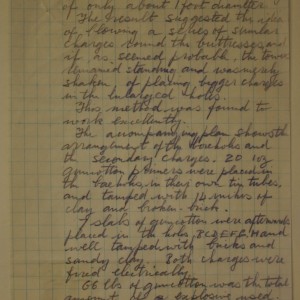 of only about 1 foot diameter.
The result suggested the idea
of blowing a series of similar
charges round the buttresses and
if as seemed probable, the tower
remained standing and was merely
shaken, of placing bigger charges
in the enlarged holes.
This method was found to
work excellently.
The accompanying plan shows the
arrangement of the boreholes and
the secondary charges. 20 1 oz
guncotton primers were placed in
the boreholes in their own tin tubes,
and tamped with 14 inches of
clay and broken brick.
7 slabs of guncotton were afterwards
placed in the holes, B C D E F G H and
well tamped with bricks and
sandy clay. Both charges were
fired electrically.
66 lbs of guncotton was the total
amount of explosive used